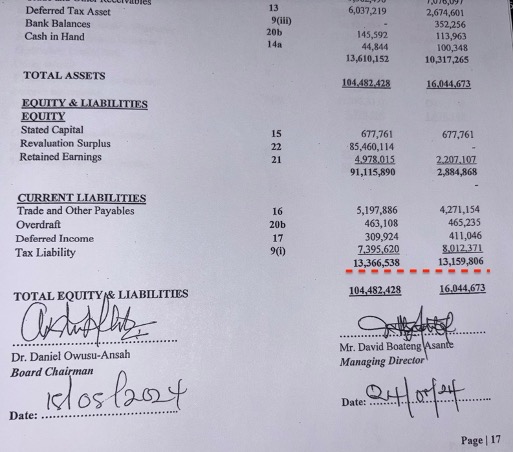 Deferred Tax Asset 13 6,037,219 2,674,601
Bank Balances 9(iii) - 352,256
Cash in Hand 20b 145,592 113,963
14a 44,844 100,348
13,610,152 10,317,265
TOTAL ASSETS 104,482,428 16,044,673
EQUITY & LIABILITIES
EQUITY
Stated Capital 15 677,761 677,761
Revaluation Surplus 22 85,460,114 -
Retained Earnings 21 4,978,015 2,207,107
91,115,890 2,884,868
-
CURRENT LIABILITIES
Trade and Other Payables 16 5,197,886 4,271,154
Overdraft 20b 463,108 465,235
Deferred Income 17 309,924 411,046
Tax Liability 9(i) 7,395,620 8,012,371
13,366,538 13,159,806
TOTAL EQUITY & LIABILITIES 104,482,428 16,044,673
Dr. Daniel Owusu-Ansah Mr. David Boateng Asante
Board Chairman Managing Director
Date: 15/05/2024 Date:
Page | 17